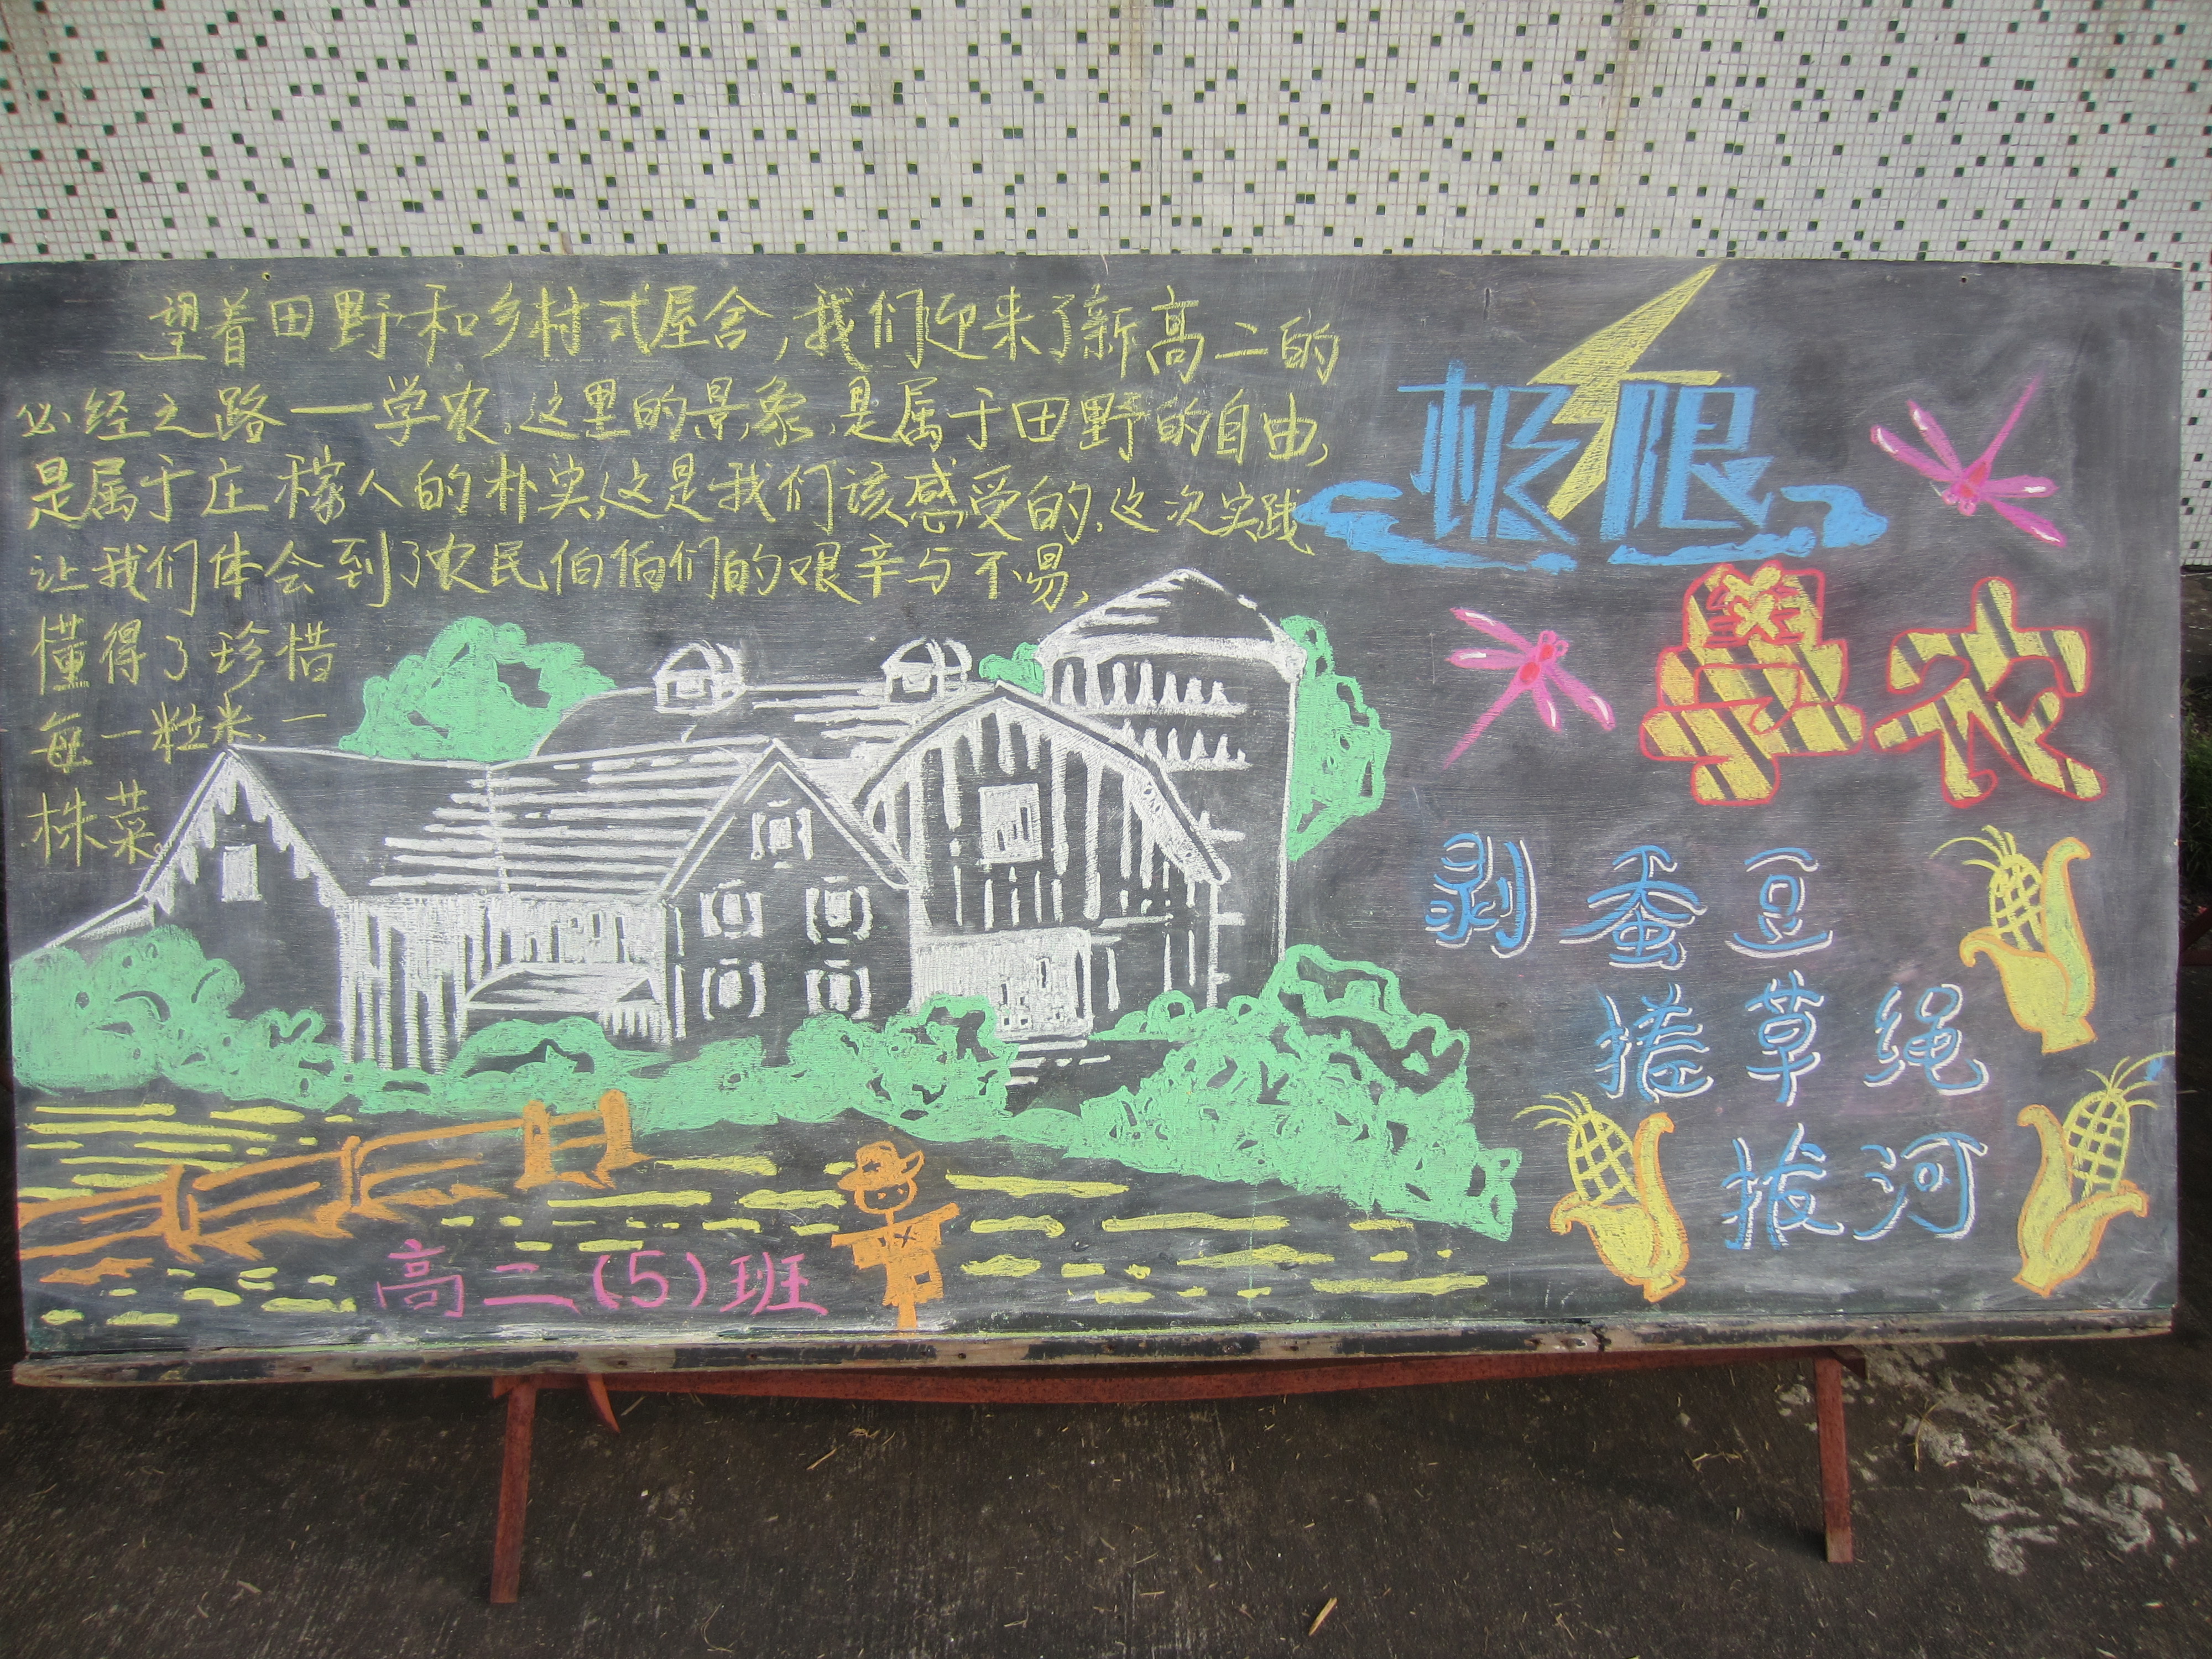 望着田野和乡村式屋舍,我们迎来了新高二的
必经之路——学农。这里的景象,是属于田野的自由,
是属于庄稼人的朴实,这是我们该感受的。这次实践
让我们体会到了农民伯伯们的艰辛与不易,
懂得了珍惜
每一粒米,一
株菜。
高二(5)班
极限
学农
剥蚕豆
搓草绳
拔河